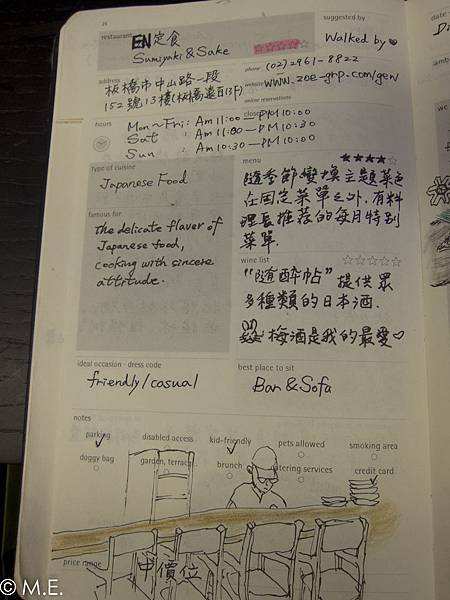 restaurant EN定食
Sumiyaki & Sake
suggested by
Walked by
address
板橋市中山路一段
152號13樓(板橋遠百13F)
phone (02)2961-8822
website www.zoe-grp.com/gen/
online reservations
hours
closed
Mon~Fri: Am 11:00 — PM 10:00
Sat : Am 11:00 — PM 10:30
Sun : Am 10:30 — PM 10:00
type of cuisine
Japanese Food
menu
隨季節變換主題菜色
在固定菜單之外,有料
理長推荐的每月特別
菜單.
famous for
the delicate flavor of
Japanese food,
cooking with sincere
attitude.
wine list
"隨醉帖"提供眾
多種類的日本酒.
梅酒是我的最愛
ideal occasion - dress code
friendly/casual
best place to sit
Bar & Sofa
notes
parking disabled access kid-friendly pets allowed smoking area
doggy bag garden, terrace brunch catering services credit card
price range 中價位
© M.E.
date
we